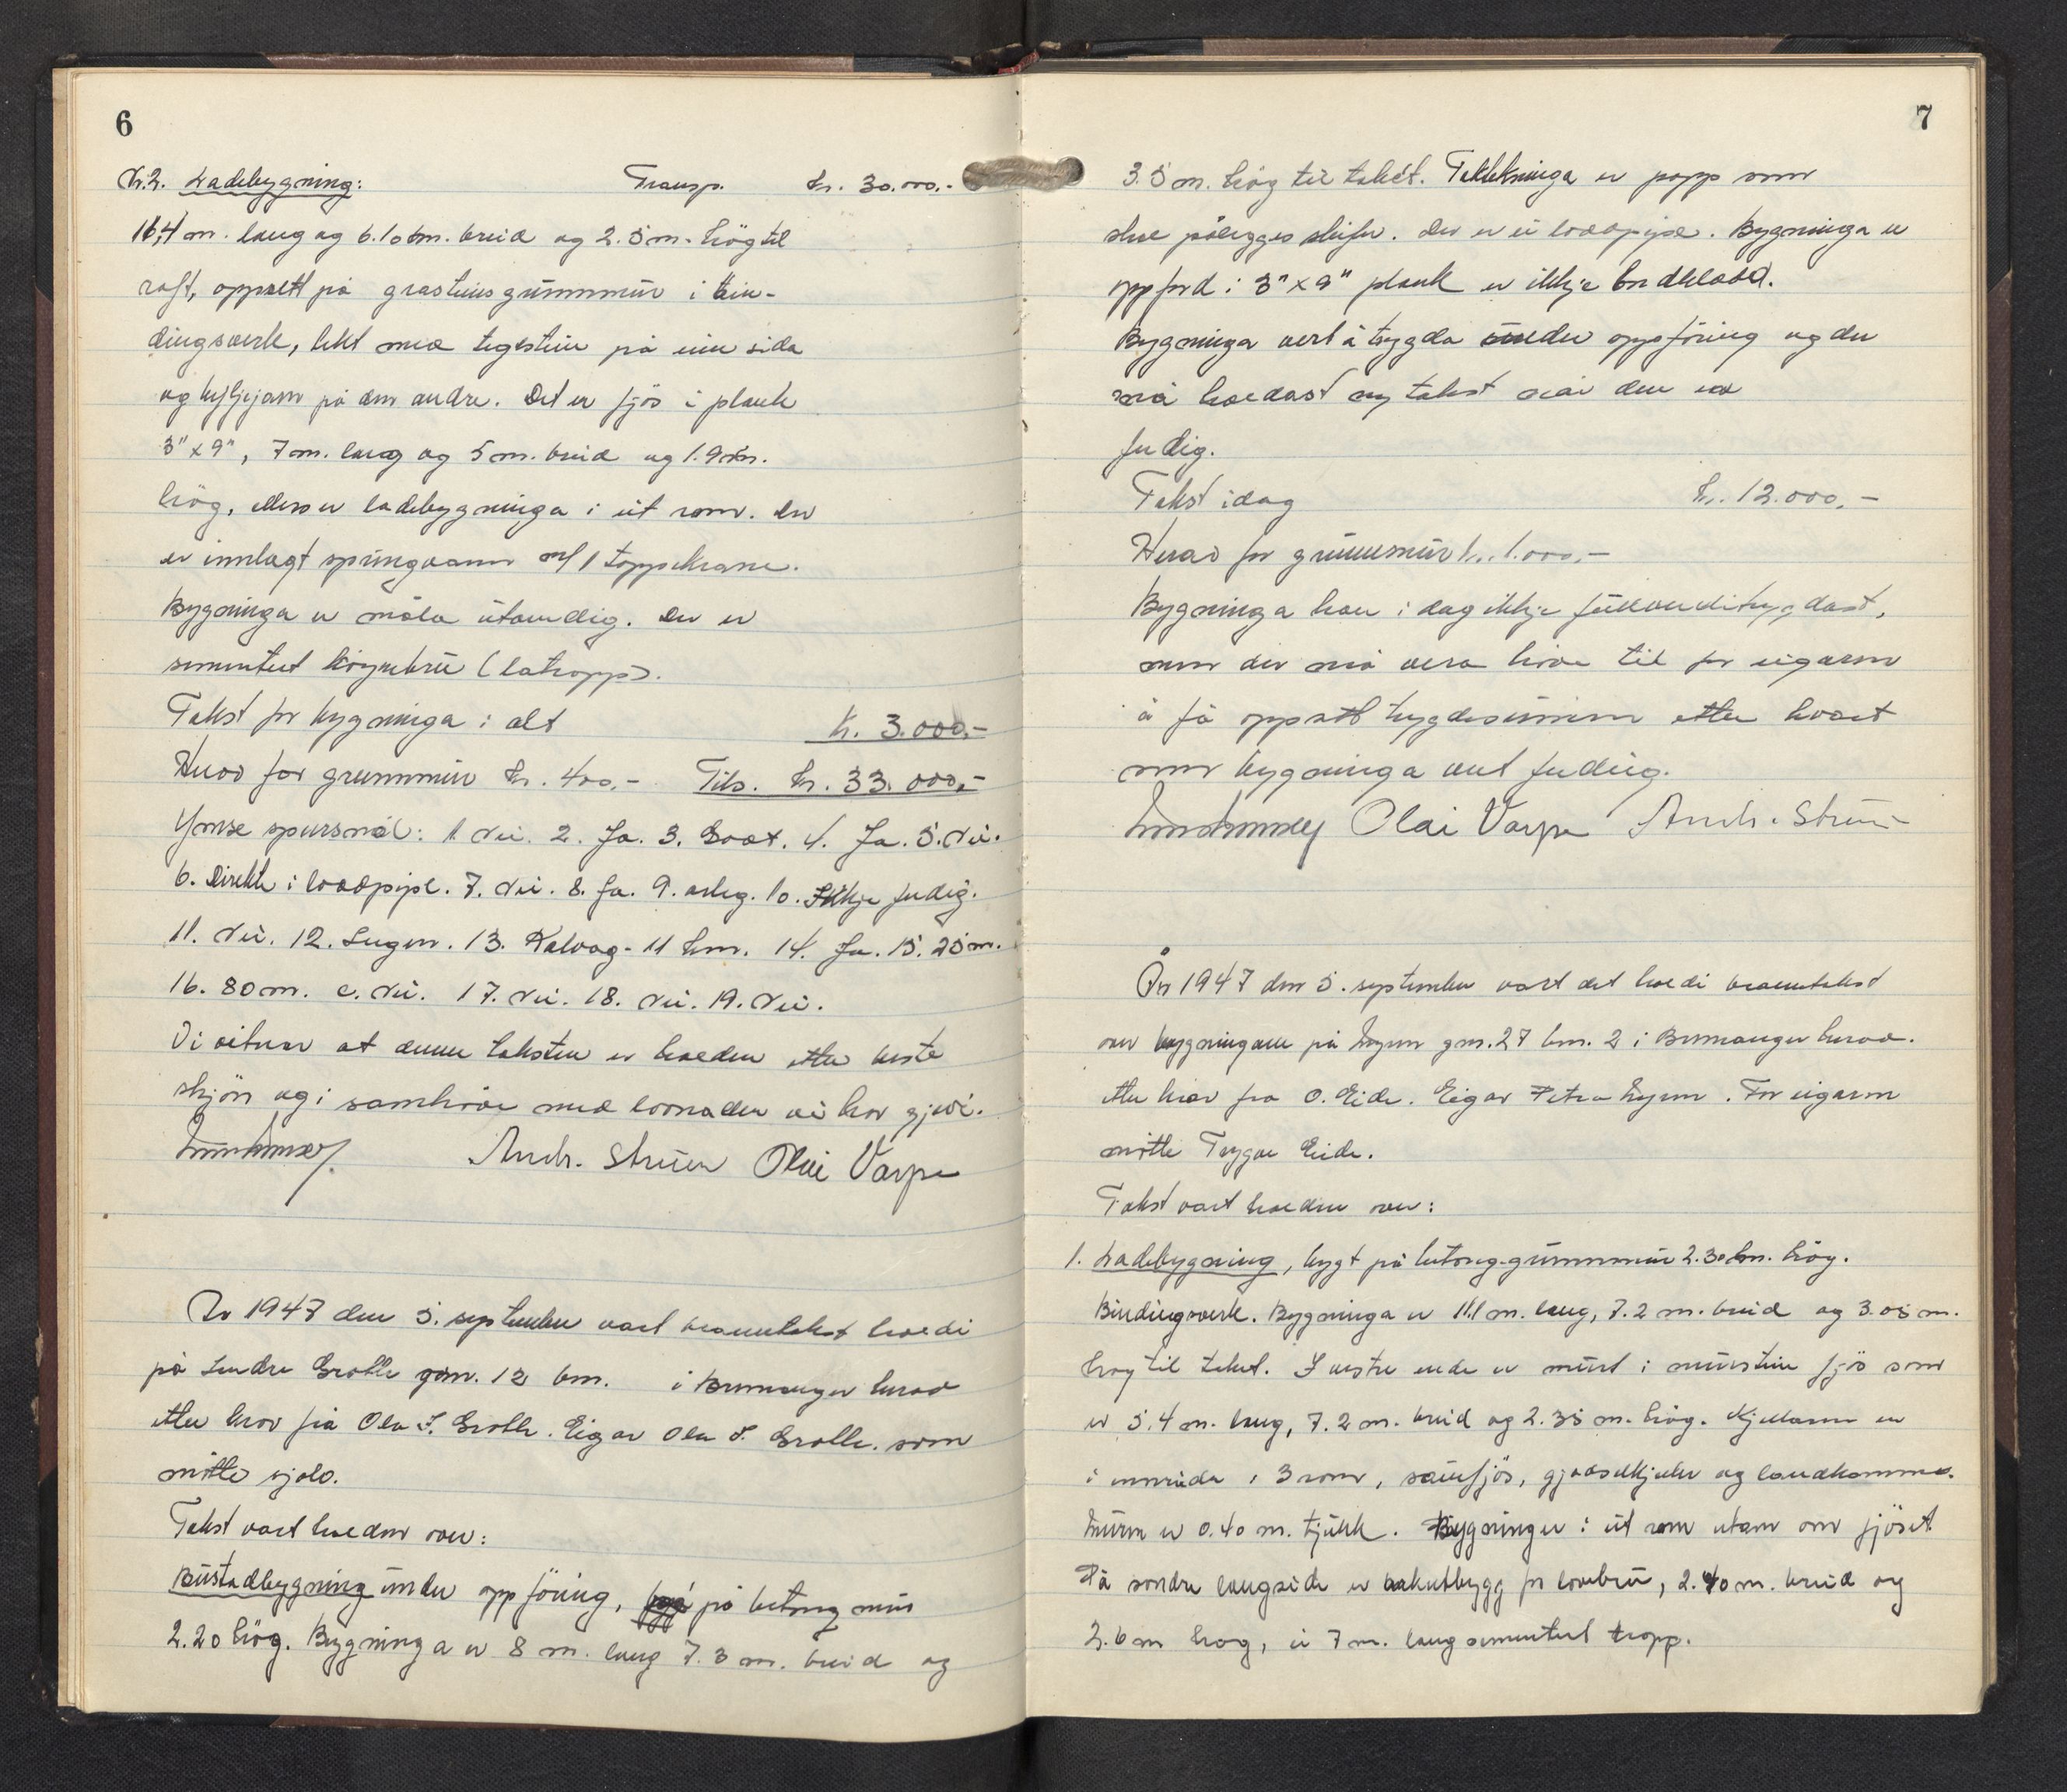 6
Nr. 2. Ladebygning: Transp. kr. 30.000.-
16,4 m. lang og 6.10 m. breid og 2.5 m. høg til
raft, oppsett på grasteinsgrunnmur i bin-
dingsverk, tekt med teglstein på eine sida
og på den andre. Det er fjøs i plank
3" x 9", 7 m. lang og 5 m. breid og 1.9 m.
høg, elles er ladebygninga i eit rom. Der
er innlagt springvann m/ 1 tappekrane.
Bygninga er måla utvendig. Der er
sementert køyrebru (låtropp).
Takst for bygninga i alt kr. 3.000.-
Herav for grunnmur kr. 400.- Tils. kr. 33.000.-
Ymse spursmål: 1. Nei. 2. Ja. 3. Godt. 4. Ja. 5. Nei.
6. Direkte i loddpipe. 7. Nei. 8. Ja. 9. årleg. 10. Ikkje ferdig.
11. Nei. 12. Ingen. 13. Kalvåg - 11 km. 14. Ja. 15. 25 m.
16. 80 m. c. Nei. 17. Nei. 18. Nei. 19. Nei.
Vi vitnar at denne taksten er halden etter beste
skjøn og i samhøve med lovnaden vi har gjevi.
Andr. Struen Olai Varpe
År 1947 den 5. september vart branntakst haldi
på Indre Grotle gnr. 12 bnr. i Bremanger herad
etter krav frå Ola I. Grotle. Eigar Ola I. Grotle. som
møtte sjølv.
Takst vart halden over:
Bustadbygning under oppføring, på betong mur
2.20 høg. Bygninga er 8 m. lang 7.3 m. breid og
7
3.5 m. høg til taket. Taktekninga er papp som
skal pålegges skifer. Der er ei loddpipe. Bygninga er
oppford i 3" x 9" plank er ikkje bordkledd.
Bygninga vert å trygda under oppføring og der
må haldast ny takst når den er
ferdig.
Takst idag kr. 12.000.-
Herav for grunnmur kr. 1.000.-
Bygninga kan i dag ikkje fullverditrygdast,
men der må vera høve til for eigaren
å få oppsett trygdesummen etter kvart
som bygninga vert ferdig.
Olai Varpe Andr. Struen
År 1947 den 5. september vart det haldi branntakst
over bygningane på gnr. 27 bnr. 2 i Bremanger herad.
etter krav fra O. Eide. Eigar Petra . For eigaren
møtte Trygve Eide.
Takst vart halden over:
1. Ladebygning, bygt på betong-grunnmur 2.30 m. høg.
Bindingsverk. Bygninga er 11.1 m. lang, 7.2 m. breid og 3.05 m.
høg til taket. I vestre ende er murt i murstein fjøs som
er 5.4 m. lang, 7.2 m. breid og 2.35 m. høg. Kjellaren er
i innreida i 3 rom, sauefjøs, gjødselkjeller og landkummar.
Muren er 0.40 m. tjukk. Bygninga er i eit rom utan om fjøset.
På søndre langside er utbygg for låvebru, 2.40 m. breid og
2.6 m høg, ei 7 m. lang sementert tropp.